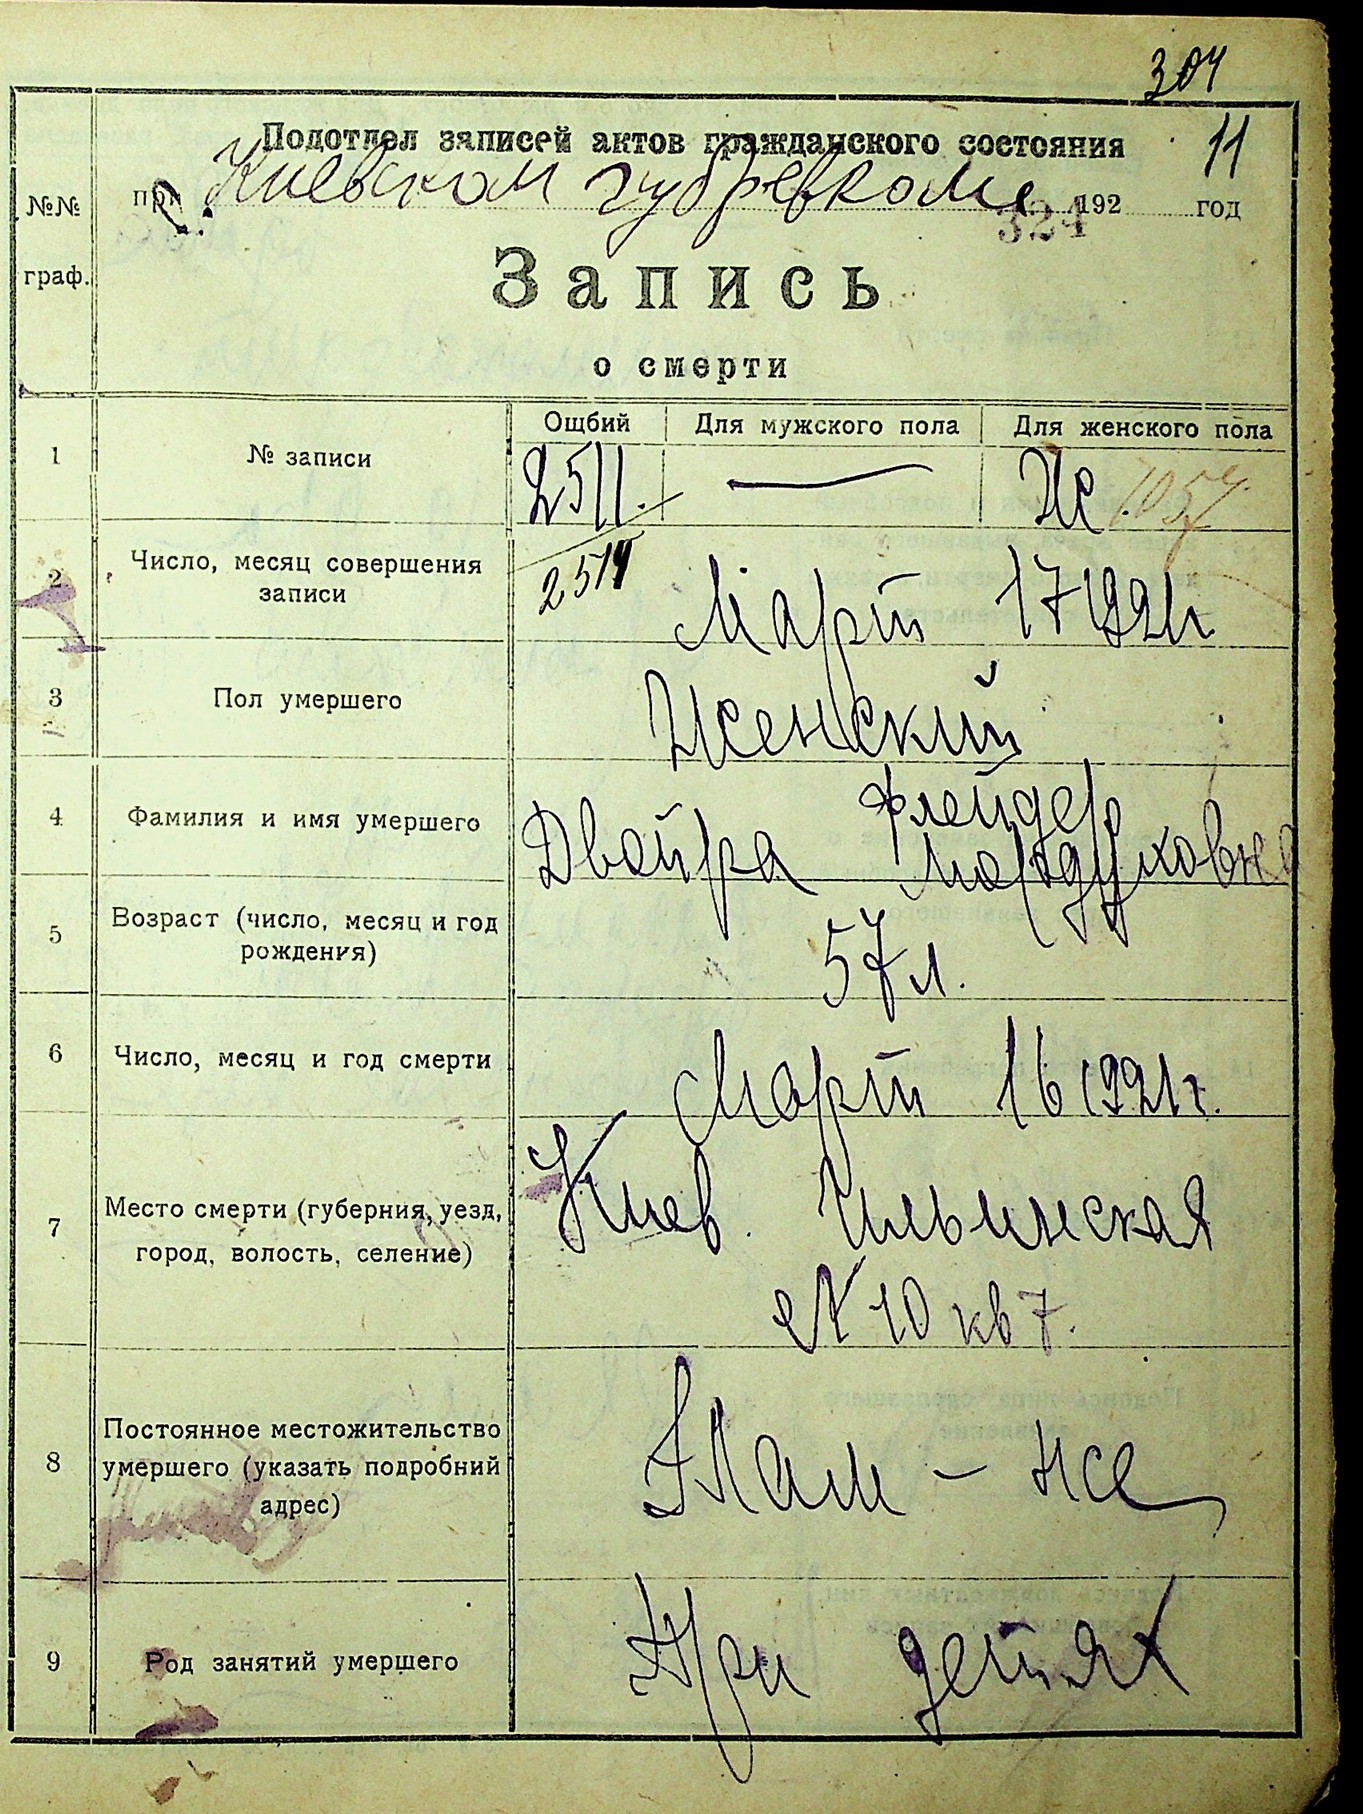 304
Подотдел записей актов гражданского состояния
11
при Киевском губревкоме 192 год
324
№№
граф.
Запись
о смерти
Ощбий Для мужского пола Для женского пола
1 № записи 2511. — Ж. 1057
2 Число, месяц совершения
записи
2514 Март 17 1921г
3 Пол умершего Женский
4 Фамилия и имя умершего Флейдер
Двойра Мордуховна
5 Возраст (число, месяц и год
рождения)
57 л.
6 Число, месяц и год смерти Март 16 1921 г.
7 Место смерти (губерния, уезд,
город, волость, селение)
Киев. Ильинская
№ 10 кв 7.
8 Постоянное местожительство
умершего (указать подробний
адрес)
Там - же
9 Род занятий умершего При детях